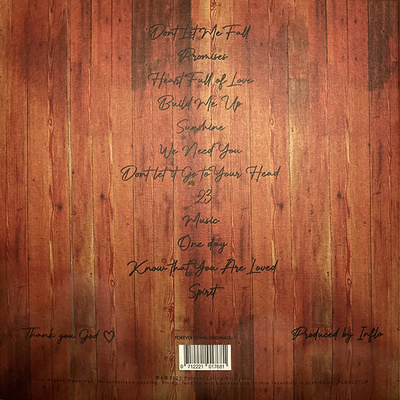 Dont Let Me Fall
Promises
Heart Full of Love
Build Me Up
Sunshine
We Need You
Dont let it Go to Your Head
23
Music
One day
Know that You Are Loved
Spirit
Thank you God ♡
Produced by Inflo
FOREVER LIVING ORIGINALS
0 712221 017681